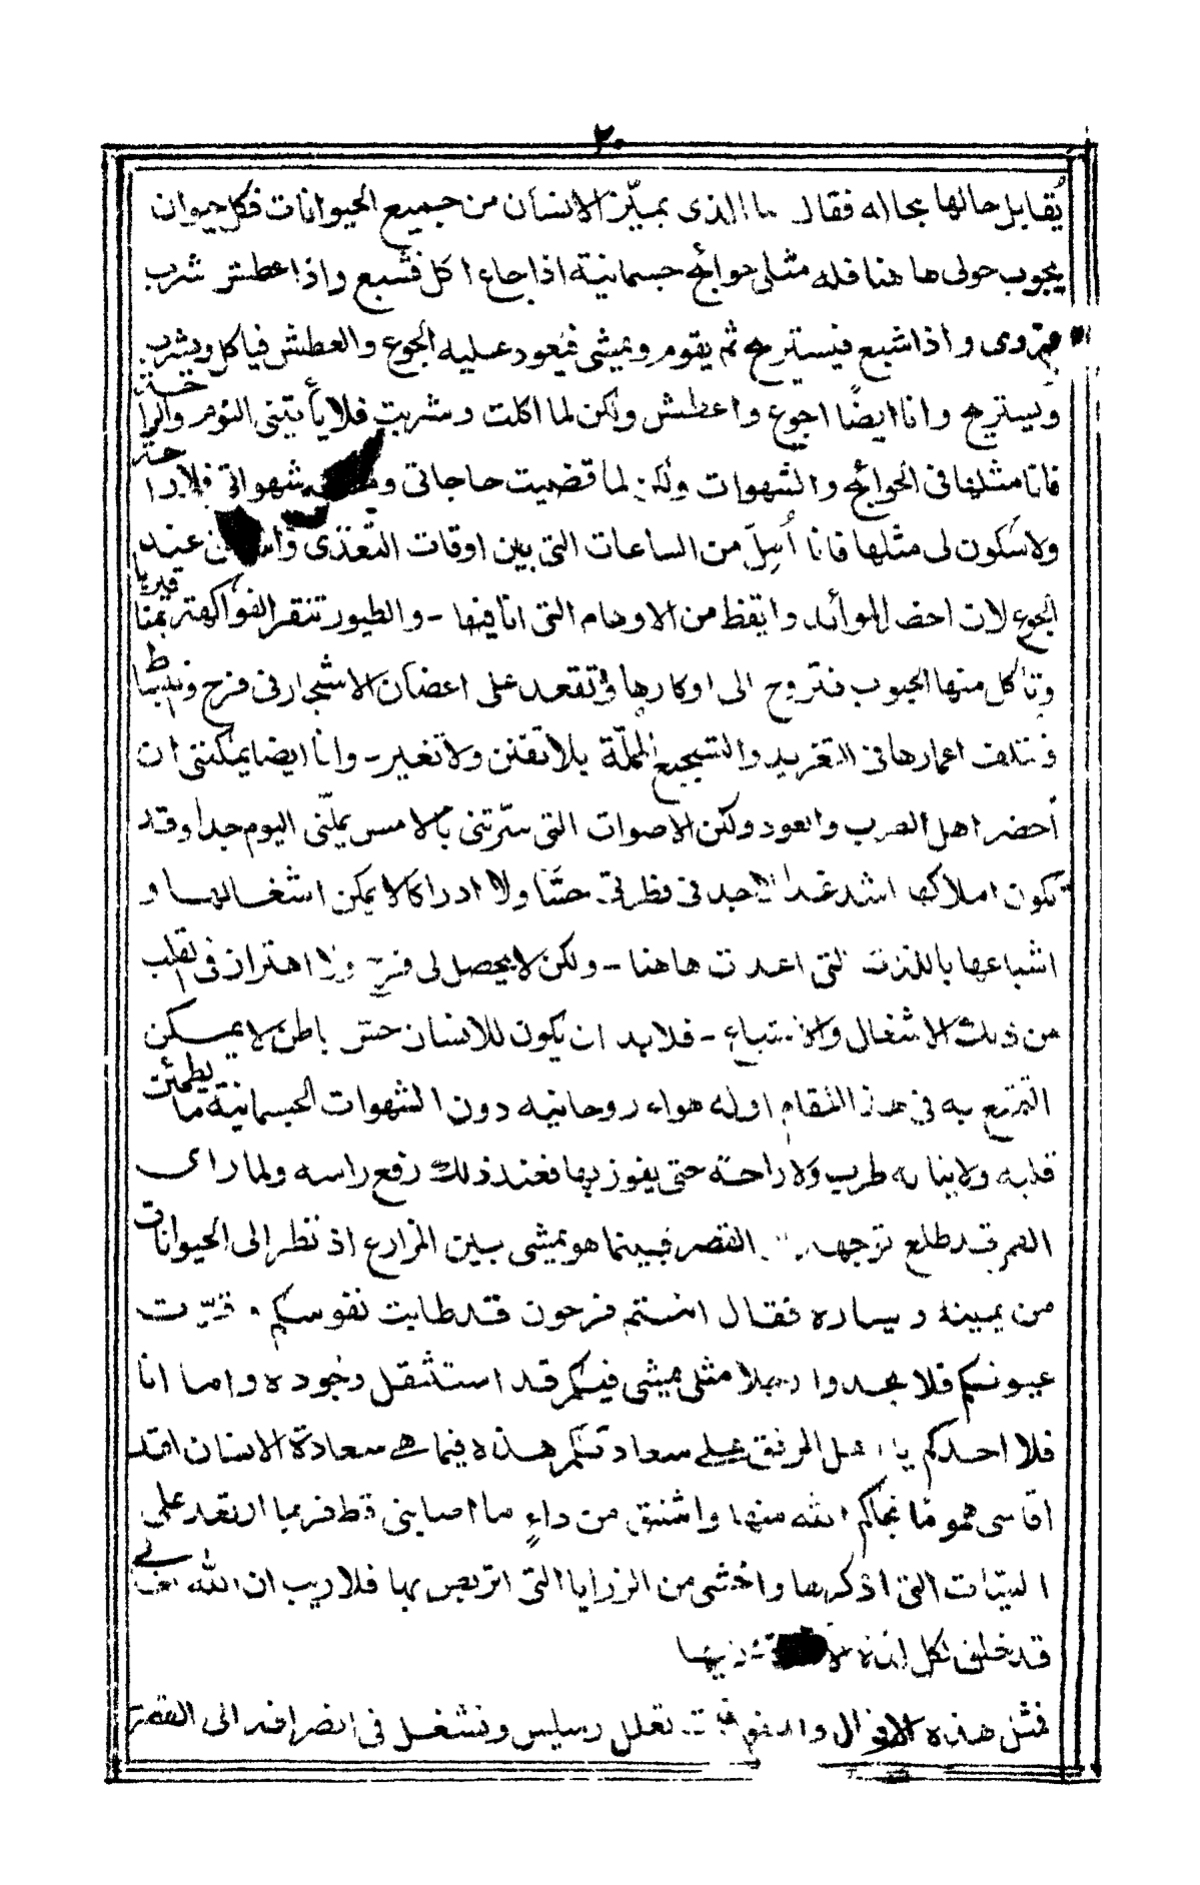 ٢٠
يُقابل حالها بحاله فقال ما الذى يميّز الانسان من جميع الحيوانات فكل حيوان
يجوب حولى ها هنا فله مثلى حوائج جسمانية اذا جاع اكل فشبع واذا عطش شرب
فروى واذا شبع فيستريح ثم يقوم ويمشى فيعود عليه الجوع والعطش فياكل ويشرب
ويستريح وانا ايضًا اجوع واعطش ولكن لما اكلت وشربت فلا يأتينى النوم والراحة
فانا مثلها فى الحوائج والشهوات ولكن لما قضيت حاجاتى شهواتى فلا راحة
ولا سكون لى مثلها فانا أسل من الساعات التى بين اوقات التغذى عند
الجوع لان احضر الموائد وايقظ من الاوهام التى انا فيها - والطيور تنقر الفواكه تقريبا
وتأكل منها الحبوب فتروح الى اوكارها وتقعد على اغصان الاشجار فى فرح
فتتلف اعمارها فى التغريد والتسجيع المملّة بلا تفنن ولا تغير - وانا ايضا يمكننى ان
أحضر اهل الضرب والعود ولكن الاصوات التى سرّتنى بالامس يملّنى اليوم جدا وقد
تكون املاكها اشد غدا لا اجد فى نظرتى حسّا ولا ادراكا لا يمكن اشغالها و
اشباعها باللذت التى اعدت هاهنا - ولكن لا يحصل لى فرح ولا اهتزاز فى القلب
من ذلك الاشغال والاشباع - فلابد ان يكون للانسان حسّ باطن لا يمكن
التمتع به فى هذا المقام اوله هواء روحانيه دون الشهوات الجسمانية ما يطمئن
قلبه ولا يناله طرب ولا راحة حتى يفوز بها فعند ذلك رفع راسه ولما راى
القمر قد طلع توجه القصر فبينما هو يمشى بين المزارع اذ نظر الى الحيوانات
من يمينه ويساره فقال انتم فرحون قد طابت نفوسكم . قرّت
عيونكم فلا تجدوا رجلا مثلى يمشى فيكم قد استثقل وجوده واما انا
فلا احدكم يا اهل الرفق على سعادتكم هذه فيما هى سعادة الانسان
اقاسى هموما نجاكم الله منها واشتق من داءٍ ما اصابنى قط فربما ارتعد على
البيّات التى اذكرها واخشى من الرزايا التى اتربص بها فلا ريب ان الله
قد خلق لكل لذة
فمثل هذه الاقوال تعلل رسليس وتشغل فى انصرافه الى القصر